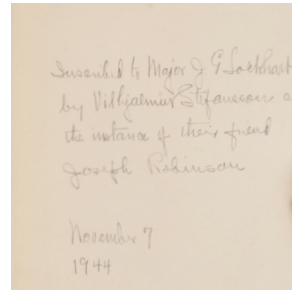 Inscribed to Major J G Lockhart
by Vilhjalmur Stefansson a
the instance of their friend
Joseph Robinson
November 7
1944